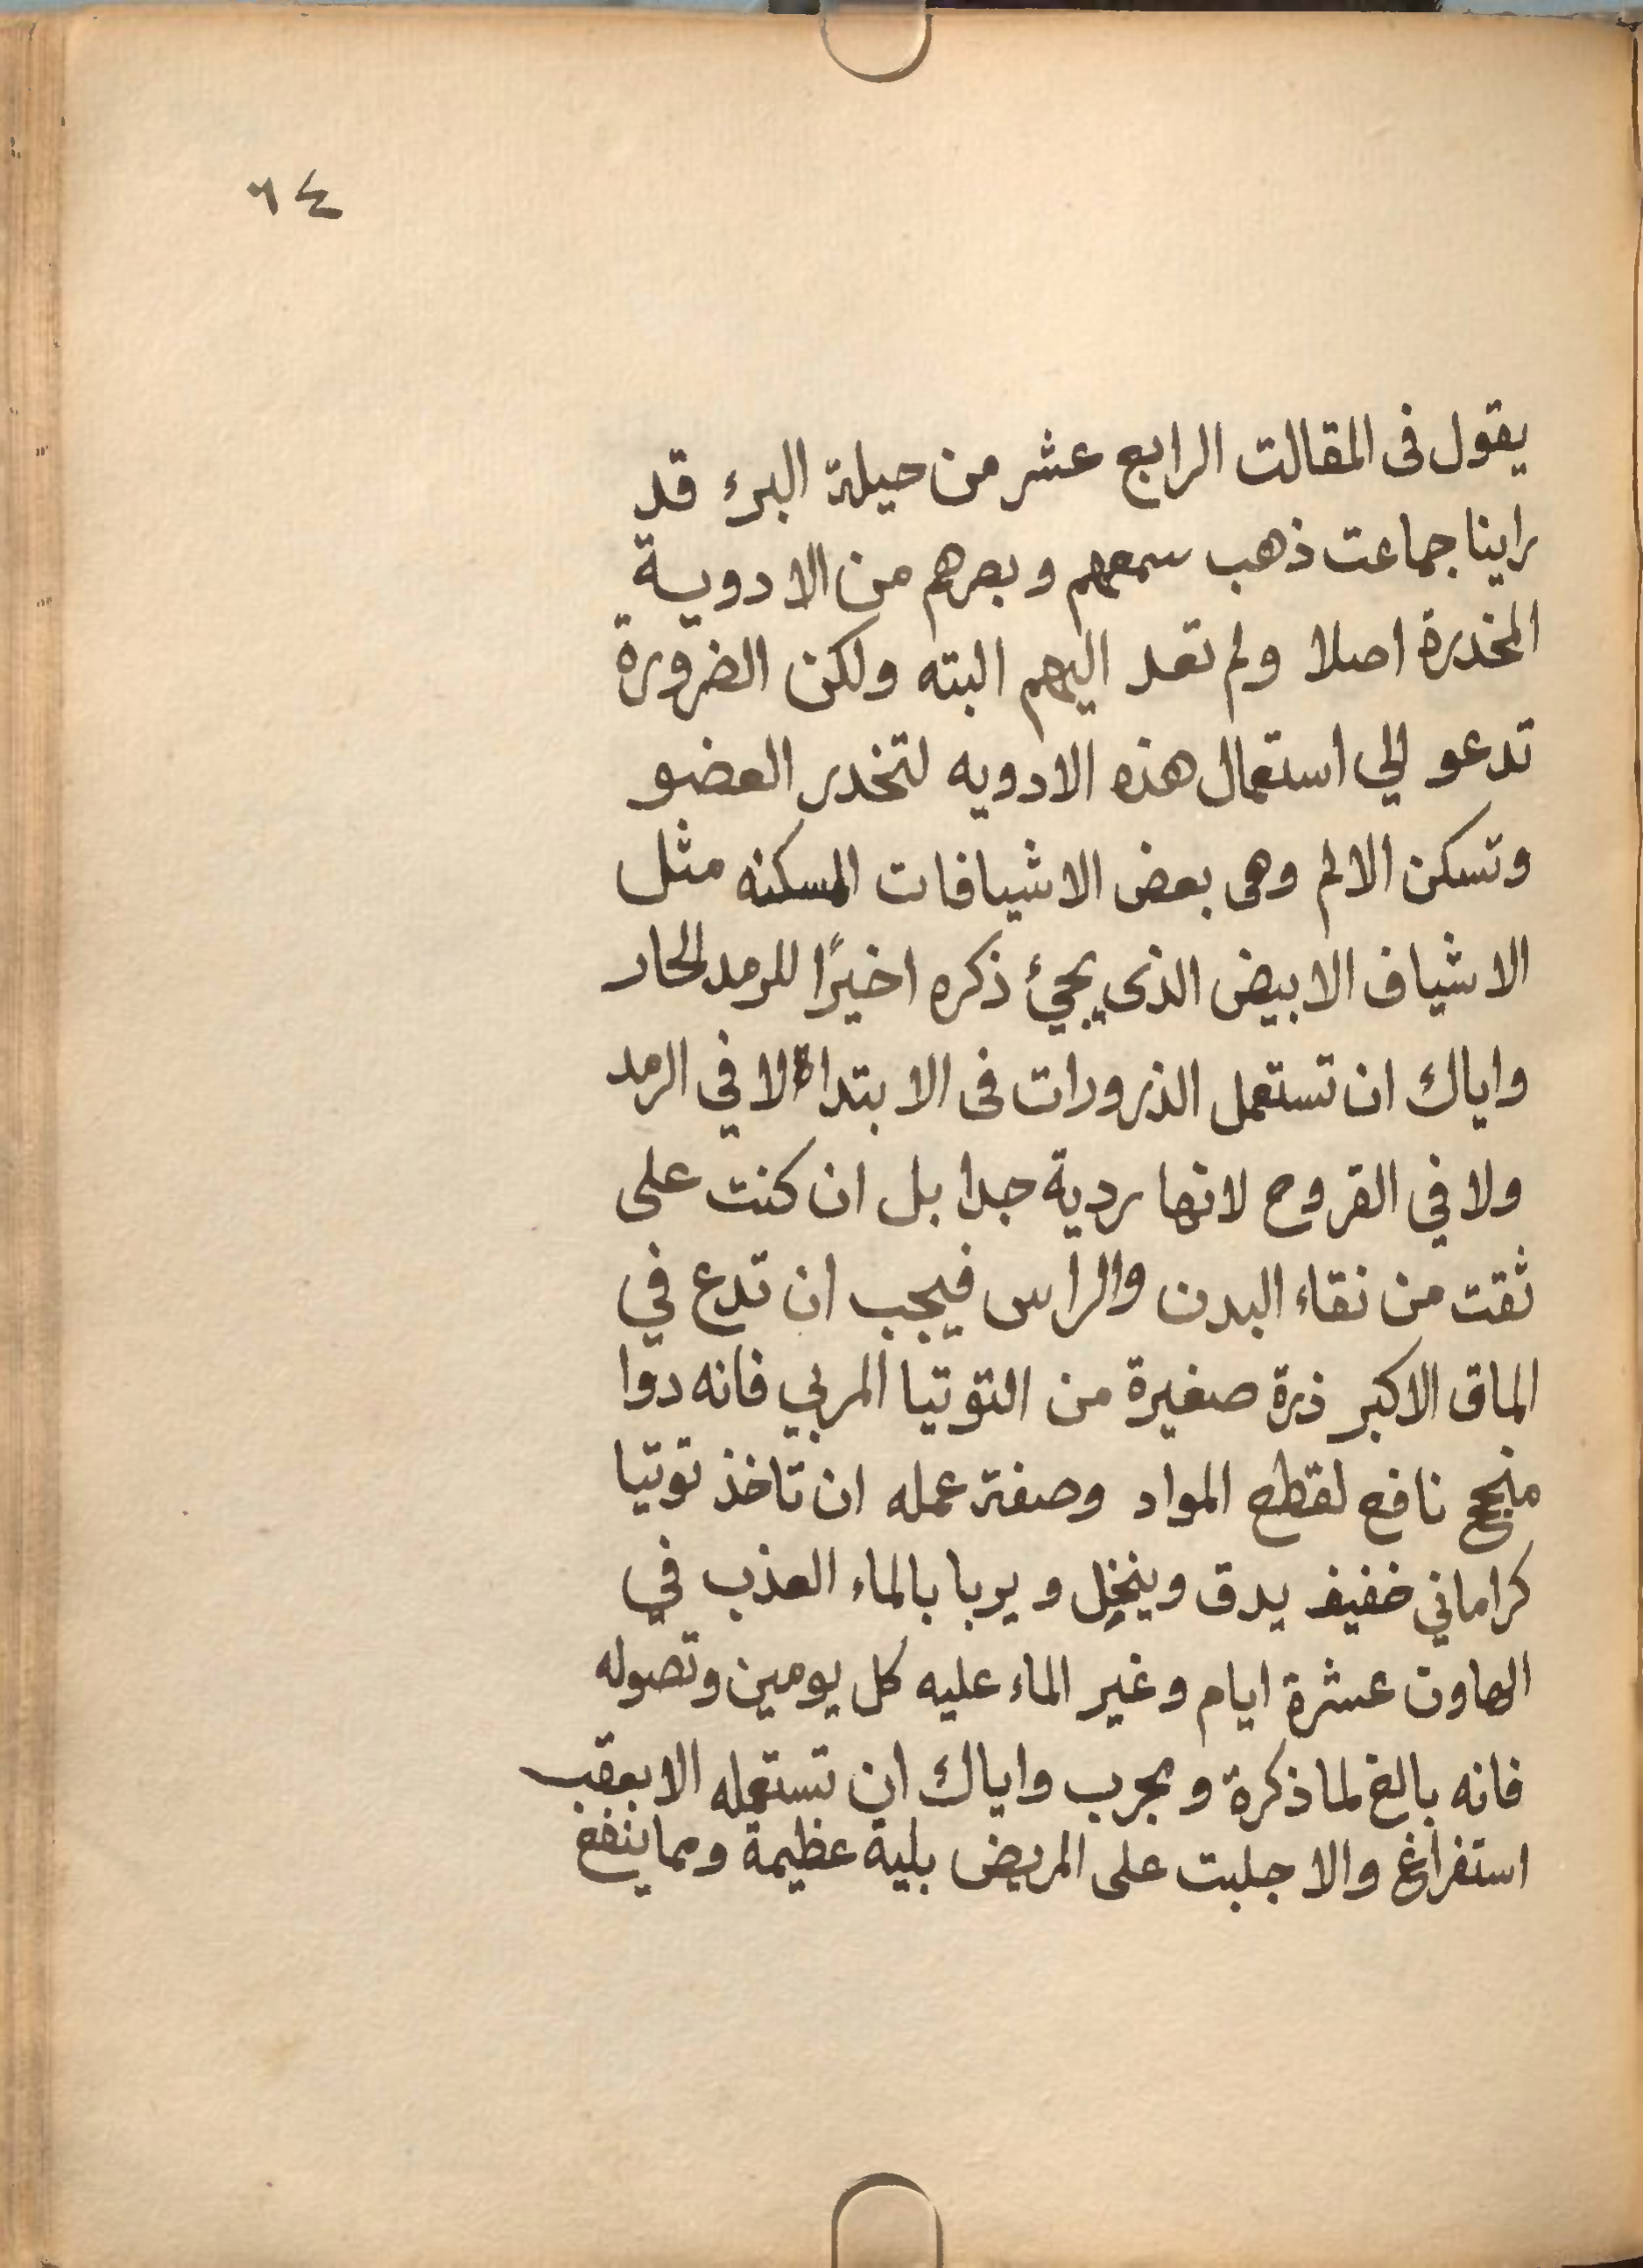 ٦٤
يقول فى المقالت الرابع عشر من حيلة البرء قد
راينا جماعت ذهب سمعهم وبصرهم من الادوية
المخدرة اصلا ولم تعد اليهم البته ولكن الضرورة
تدعو الي استعمال هذه الادويه لتخدر العضو
وتسكن الالم وهى بعض الاشيافات المسكنه مثل
الاشياف الابيض الذى يجيئ ذكره اخيرًا للرمد الحار
واياك ان تستعمل الذرورات فى الابتداء لا في الرمد
ولا في القروح لانها ردية جدا بل ان كنت على
ثقت من نقاء البدن والراس فيجب ان تدع في
الماق الاكبر ذرة صغيرة من التوتيا المربي فانه دوا
منجح نافع لقطع المواد وصفة عمله ان تاخذ توتيا
كراماني خفيف يدق وينخل ويربا بالماء العذب في
الهاون عشرة ايام وغير الماء عليه كل يومين وتصوله
فانه بالغ لما ذكرة ومجرب واياك ان تستعمله الا بعقب
استفراغ والا جلبت على المريض بلية عظيمة ومما ينفع